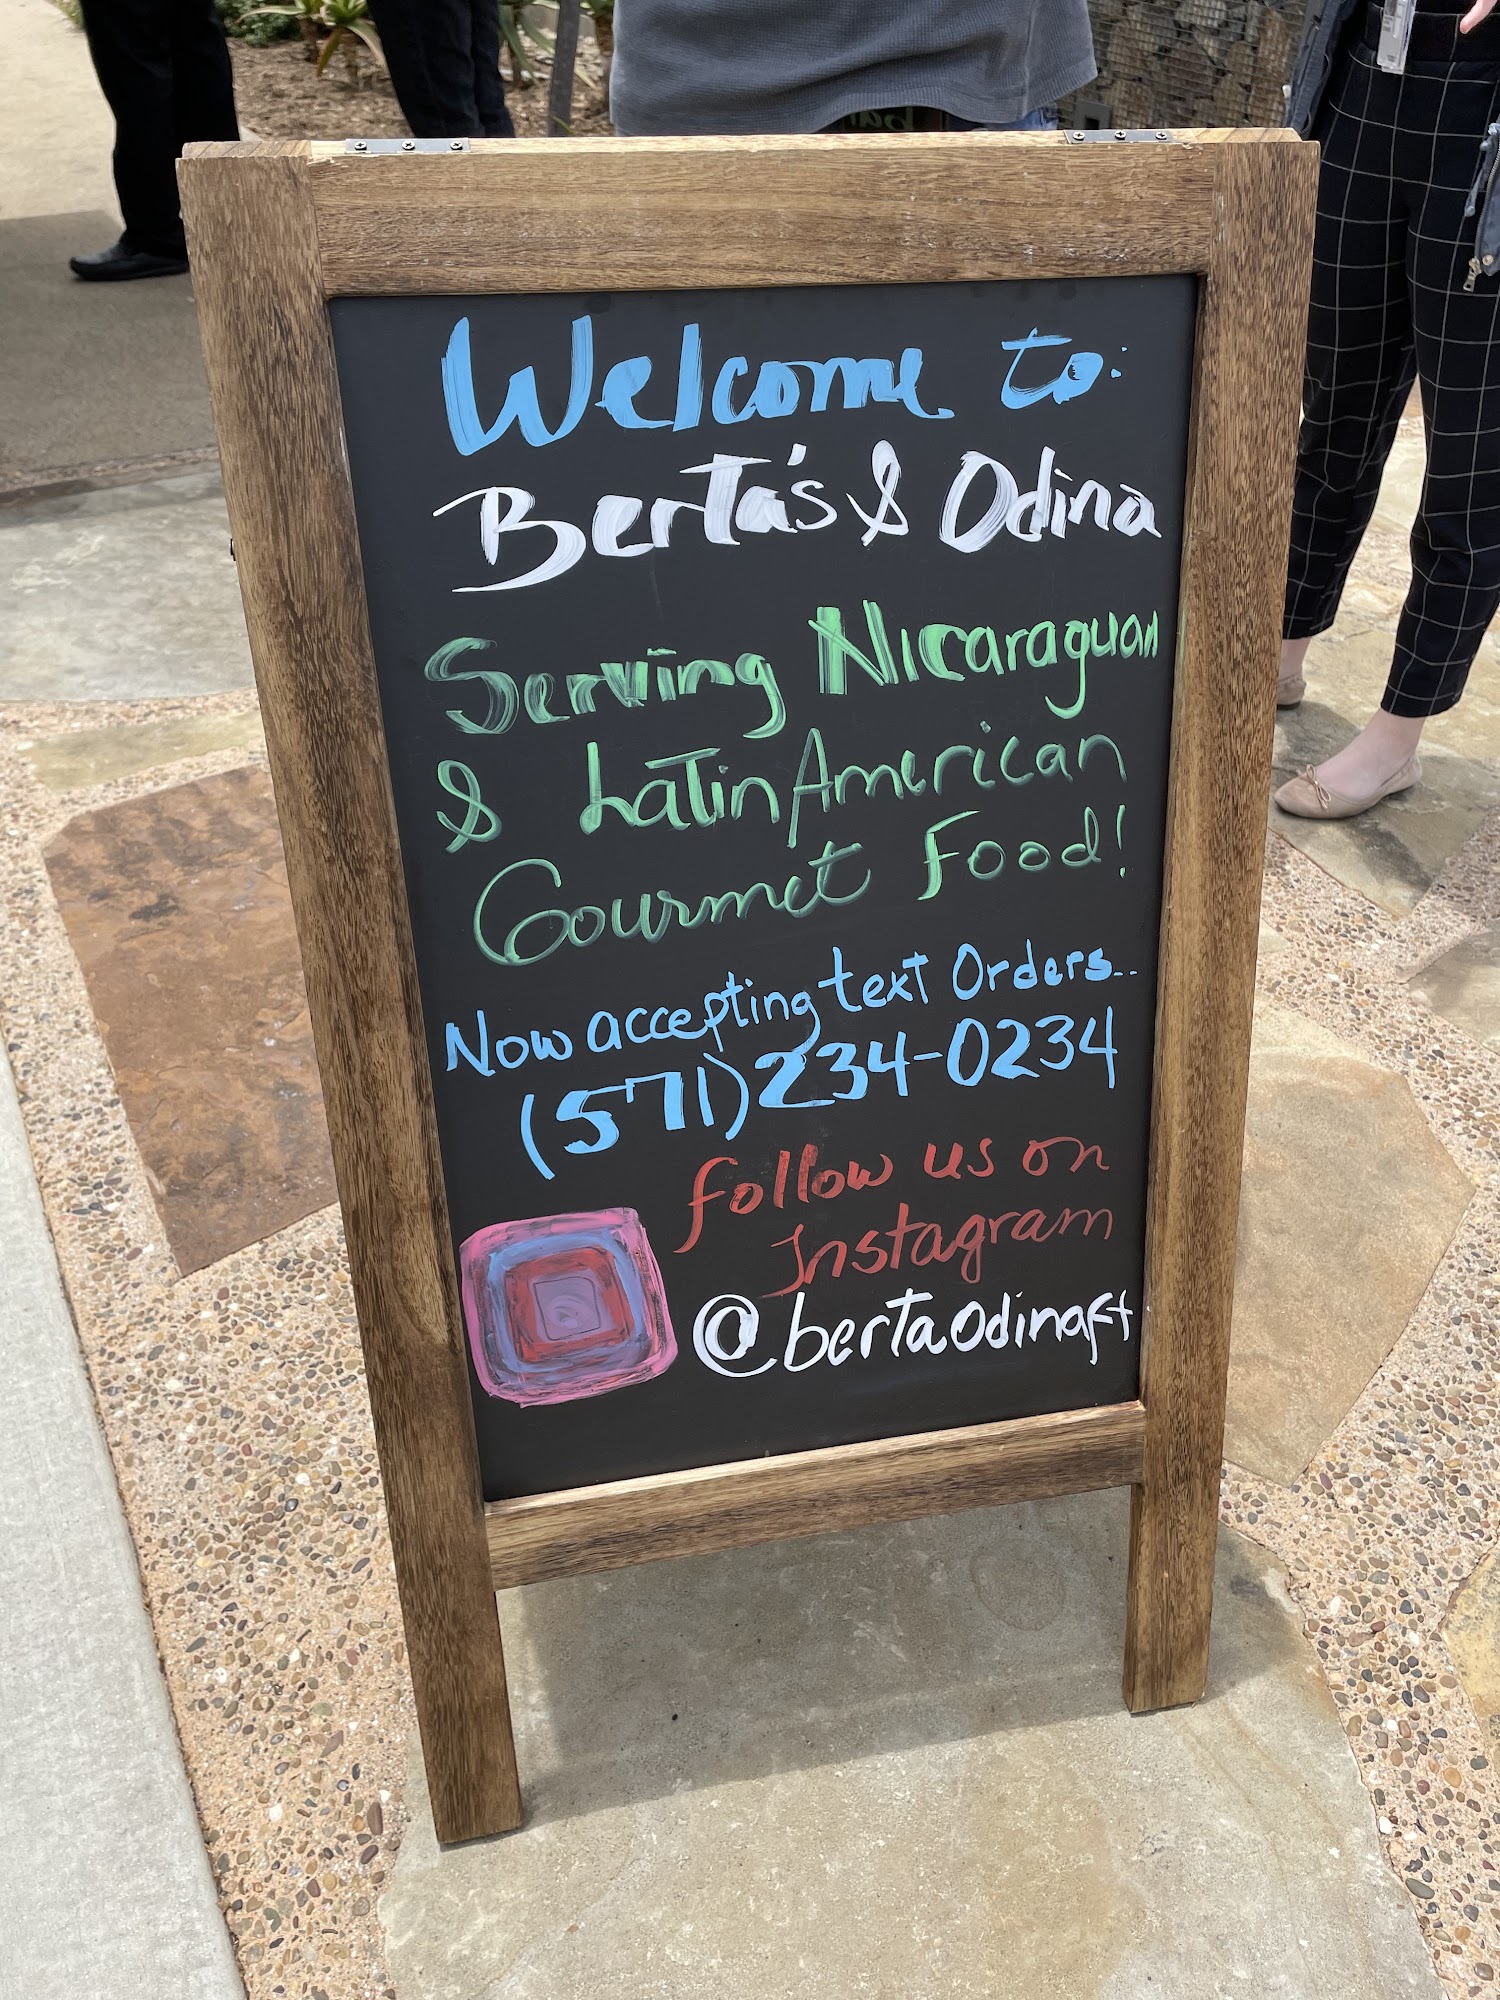 Welcome to:
Berta's & Odina
Serving Nicaraguan
& Latin American
Gourmet Food!
Now accepting text Orders..
(571) 234-0234
follow us on
Instagram
@bertaodinaft